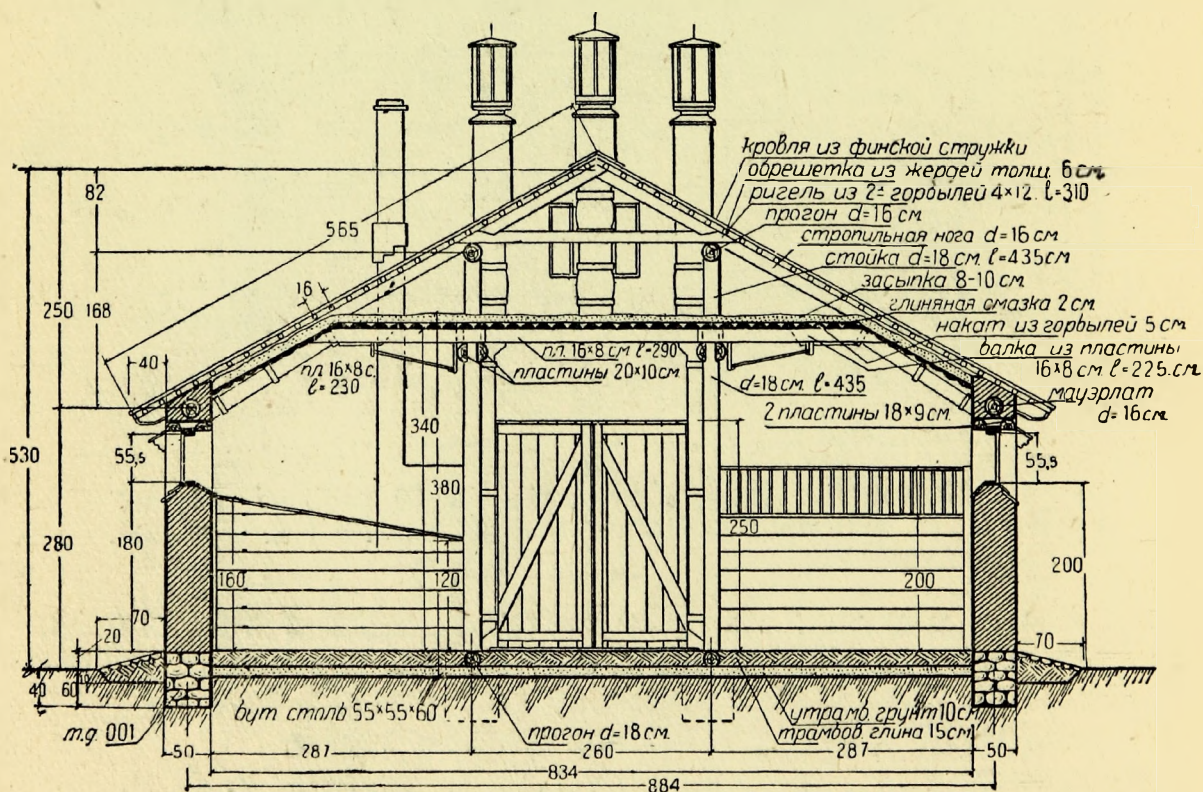 кровля из финской стружки
обрешетка из жердей толщ. 6 см
ригель из 2х горбылей 4×12. l=310
прогон d=16 см
стропильная нога d=16 см
стойка d=18 см. l=435 см
засыпка 8-10 см.
глиняная смазка 2 см
накат из горбылей 5 см.
балка из пластины
16×8 см. l=225. см
мауэрлат
d=16 см.
82
565
250
168
16
40
пл. 16×8 см l=290
пл 16×8 с.
l=230
пластины 20×10 см.
d=18 см. l=435
2 пластины 18×9 см.
340
530
55,5
55,5
380
280
180
160
120
250
200
200
70
70
20
40
60
10
т.д. 001
бут столб 55×55×60
прогон d=18 см.
утрамб. грунт 10 см
трамбов. глина 15 см.
50
287
260
287
50
834
884